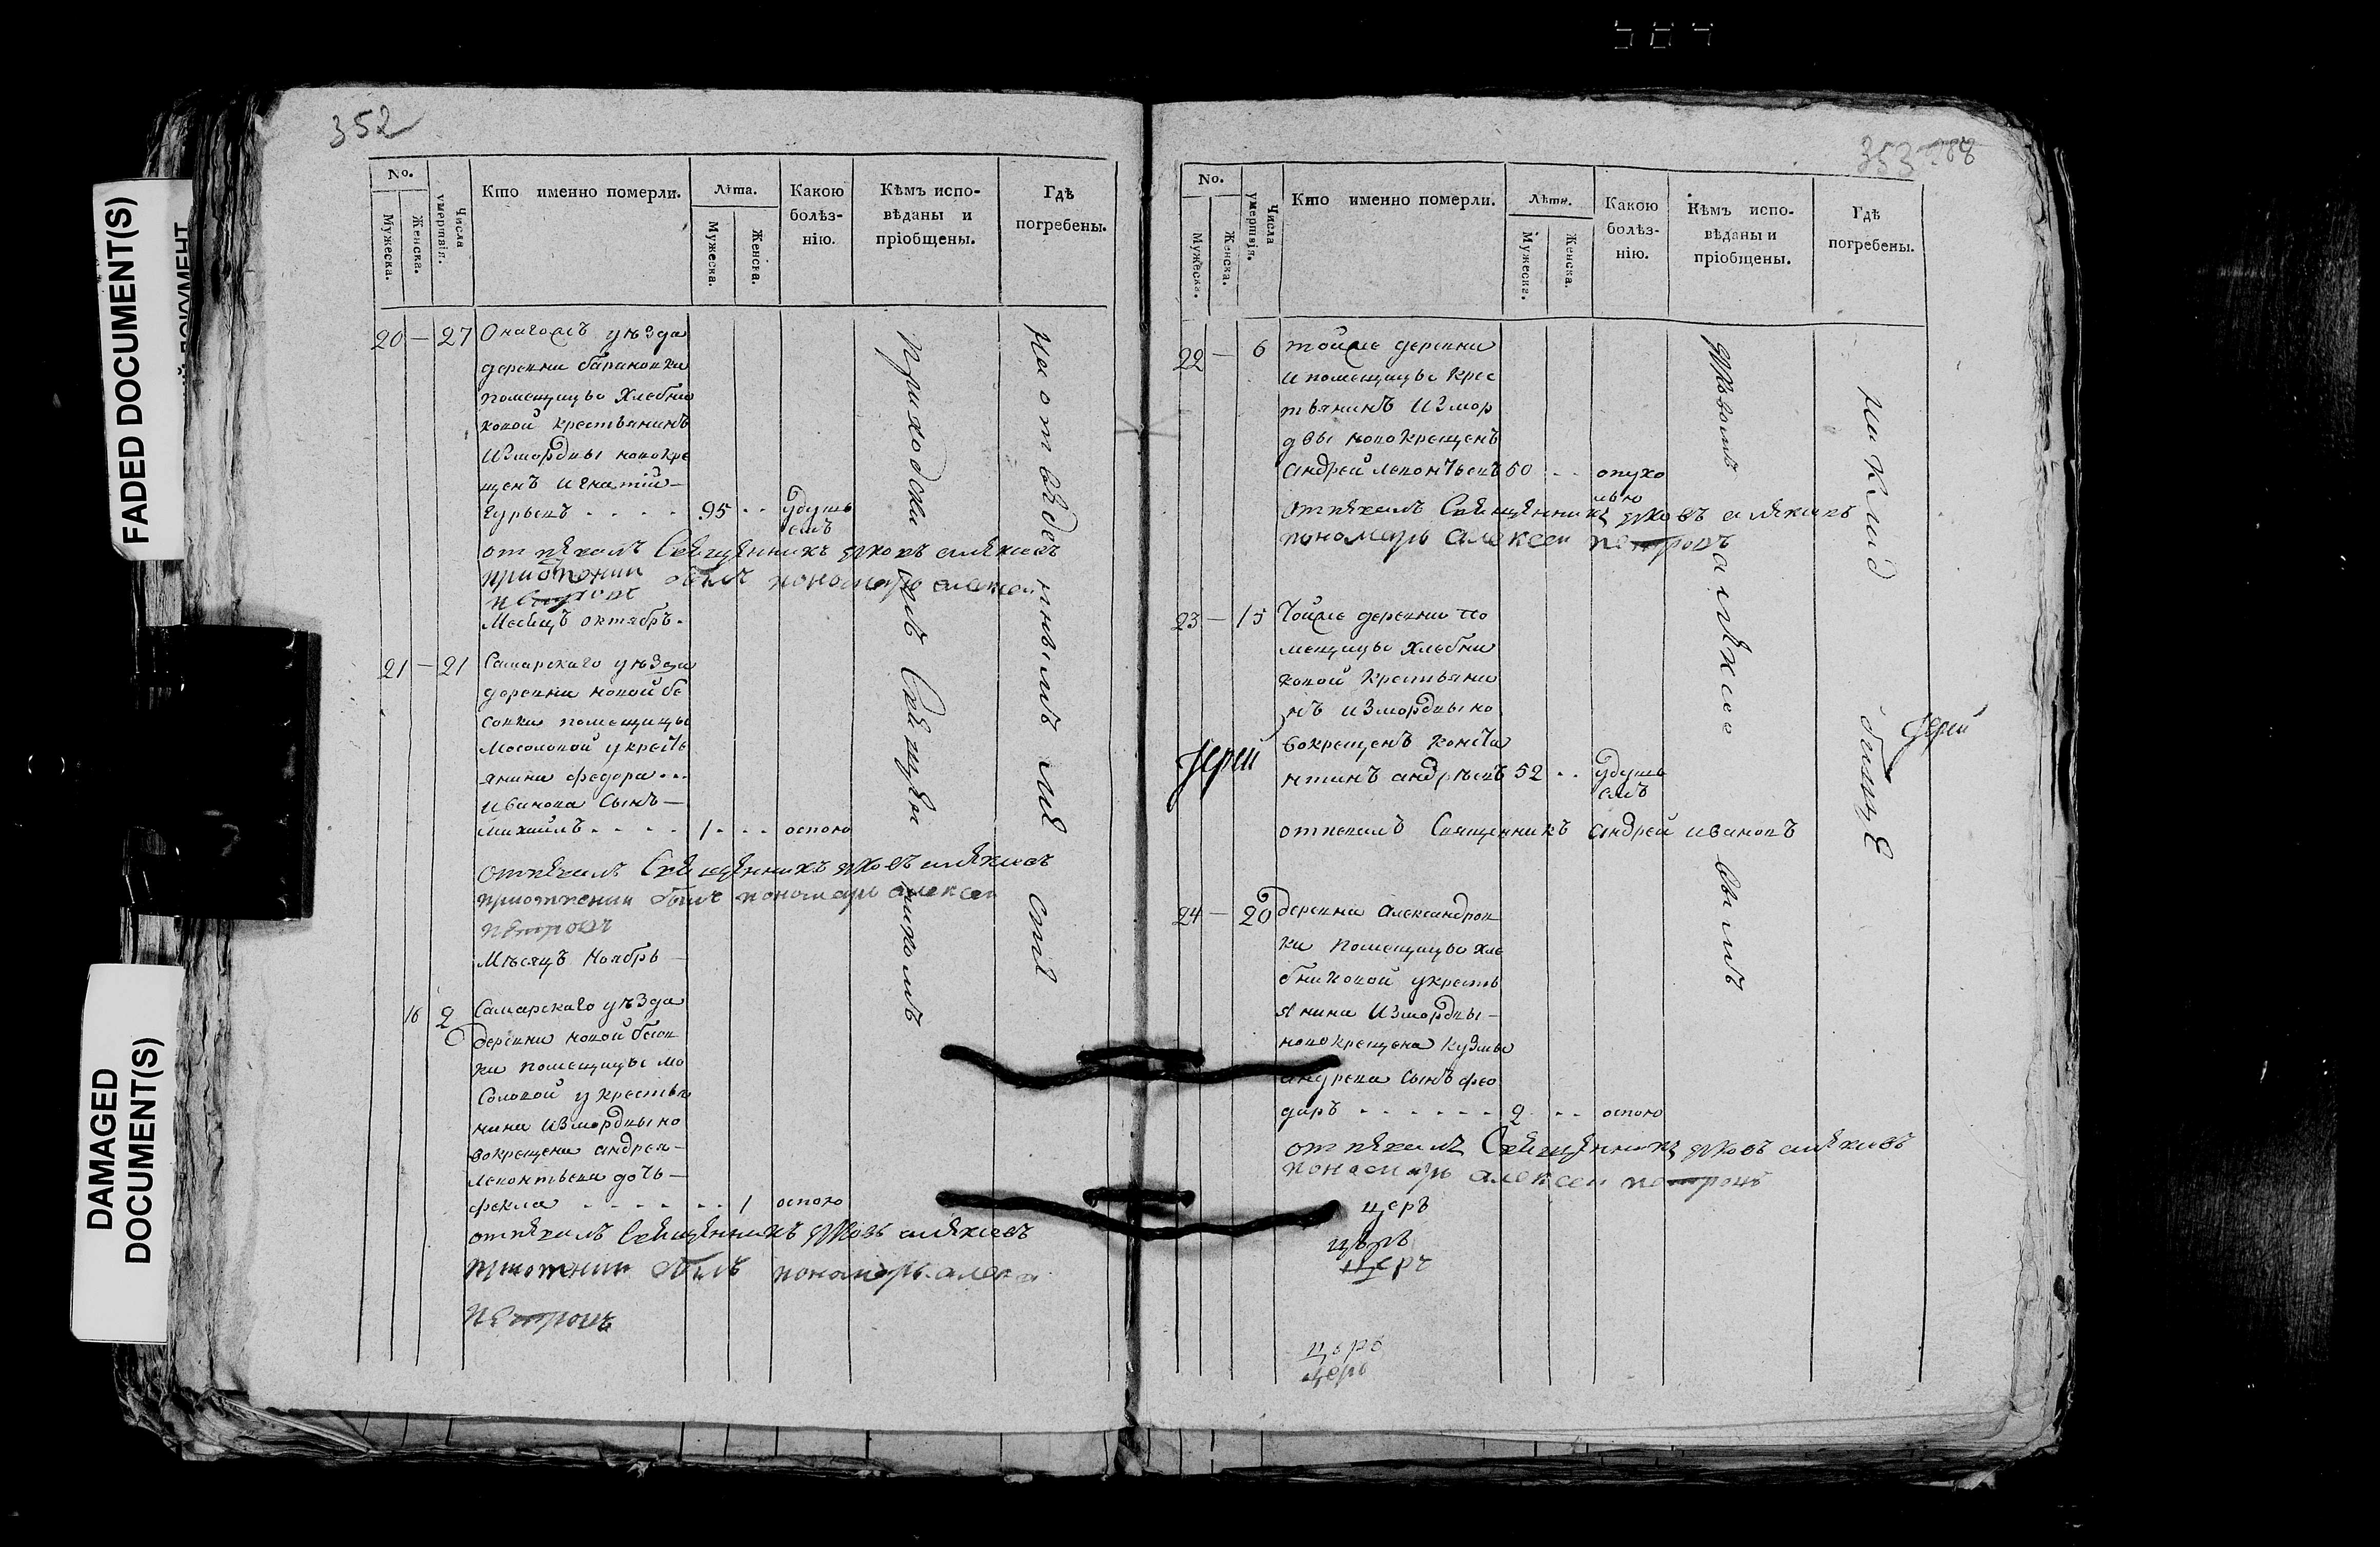 FADED DOCUMENT(S)
DAMAGED
DOCUMENT(S)
352
No.
Мужеска.
Женска.
Числа
умертвія.
Кто именно померли.
Лѣта.
Мужеска.
Женска.
Какою
болѣз-
нію.
Кѣмъ испо-
вѣданы и
пріобщены.
Гдѣ
погребены.
20 — 27
уѣзда
деревни Барановки
помещицы Хлебни
ковой крестьянинъ
измордвы новокре
щенъ Игнатій
Гурьевъ 95 удушь
емъ
отпевалъ Священникъ яковъ алекиевъ
приотпении былъ пономарь алексеи
петровъ
Месецъ октябрь
21 — 21
Самарскаго уѣзда
деревни новой бе
совки помещицы
Мосоловой укресть
янина федора
Иванова Сынъ
михаилъ 1 оспою
отпевалъ Священникъ яковъ алекиевъ
приотпении былъ пономарь алексеи
петровъ
Мѣсяцъ Ноябрь
16 2
Самарскаго уѣзда
деревни новой бесов
ки помещицы мо
Соловой укрестья
нина измордвы но
вокрещена андрея
леонтьева дочь
фекла 1 оспою
отпевалъ Священникъ яковъ алекиевъ
приотпении былъ пономарь алексеи
петровъ
Приходскимъ Священникомъ
На отведенномъ месте
353
No.
Мужеска.
Женска.
Числа
умертвія.
Кто именно померли.
Лѣта.
Мужеска.
Женска.
Какою
болѣз-
нію.
Кѣмъ испо-
вѣданы и
пріобщены.
Гдѣ
погребены.
22 — 6
тойже деревни
и помещицы крес
тьянинъ измор
двы новокрещенъ
андрей леонтьевъ 50 опухо
лью
отпевалъ Священникъ яковъ алекиевъ
пономарь алексеи петровъ
23 — 15
Тойже деревни по
мещицы Хлебни
ковой крестьяни
нъ измордвы но
вокрещенъ конста
нтинъ андрѣевъ 52 удушь
емъ
отпевалъ Священникъ андрей ивановъ
24 — 20
деревни александров
ки помещицы хле
бниковой укресть
янина измордвы
новокрещена кузмы
андреева сынъ фео
доръ 2 оспою
отпевалъ Священникъ яковъ алекиевъ
пономарь алексеи петровъ
церъ
церъ
яковомъ алекиевымъ
на кладбище
Іерей
Іерей